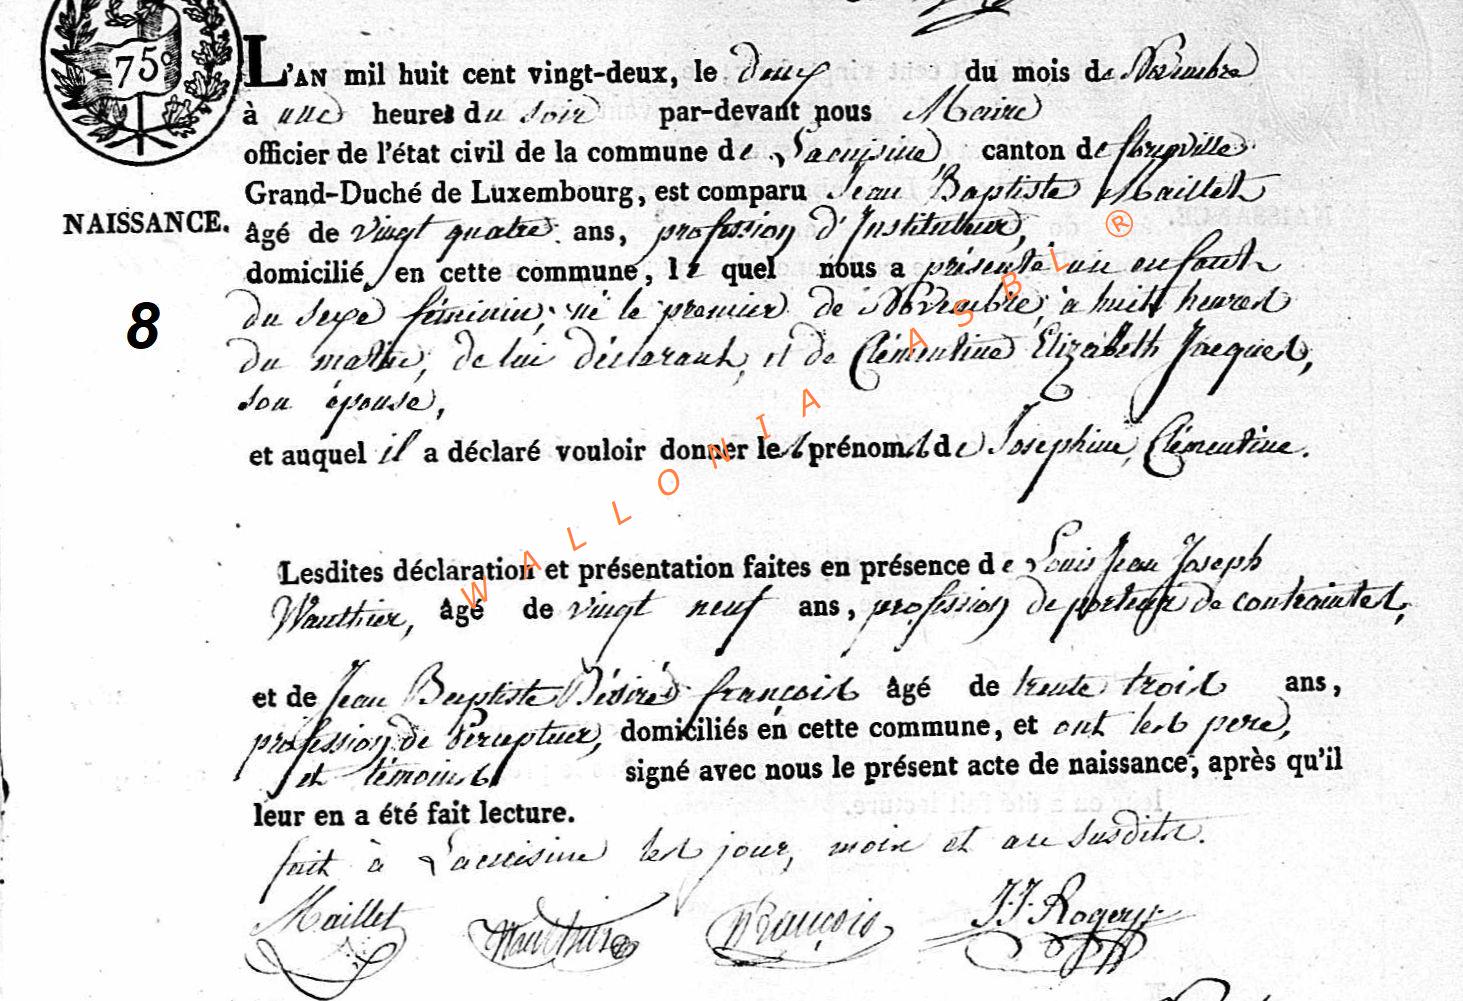 75c
L'AN mil huit cent vingt-deux, le deux du mois de Novembre
à une heures du soir par-devant nous Maire
officier de l'état civil de la commune de Lacuisine, canton de florenville
Grand-Duché de Luxembourg, est comparu Jean Baptiste Maillet
NAISSANCE.
âgé de vingt quatre ans, profession d'Instituteur,
domicilié en cette commune, le quel nous a présenté un enfant
8
du sexe féminin, né le premier de Novembre, à huit heures
du matin, de lui déclarant, et de Clémentine Elizabeth Jacques,
son épouse,
et auquel il a déclaré vouloir donner les prénoms de Josephine, Clémentine.
Lesdites déclaration et présentation faites en présence de Louis Jean Joseph
Wauthier, âgé de vingt neuf ans, profession de porteur de contraintes,
et de Jean Baptiste Désiré françois âgé de trente trois ans,
profession de Percepteur, domiciliés en cette commune, et ont les pere,
et témoins signé avec nous le présent acte de naissance, après qu'il
leur en a été fait lecture.
fait à Lacuisine les jour, mois et an susdits.
Maillet Wauthier François J.J. Rogery
WALLONIA ASBL ®